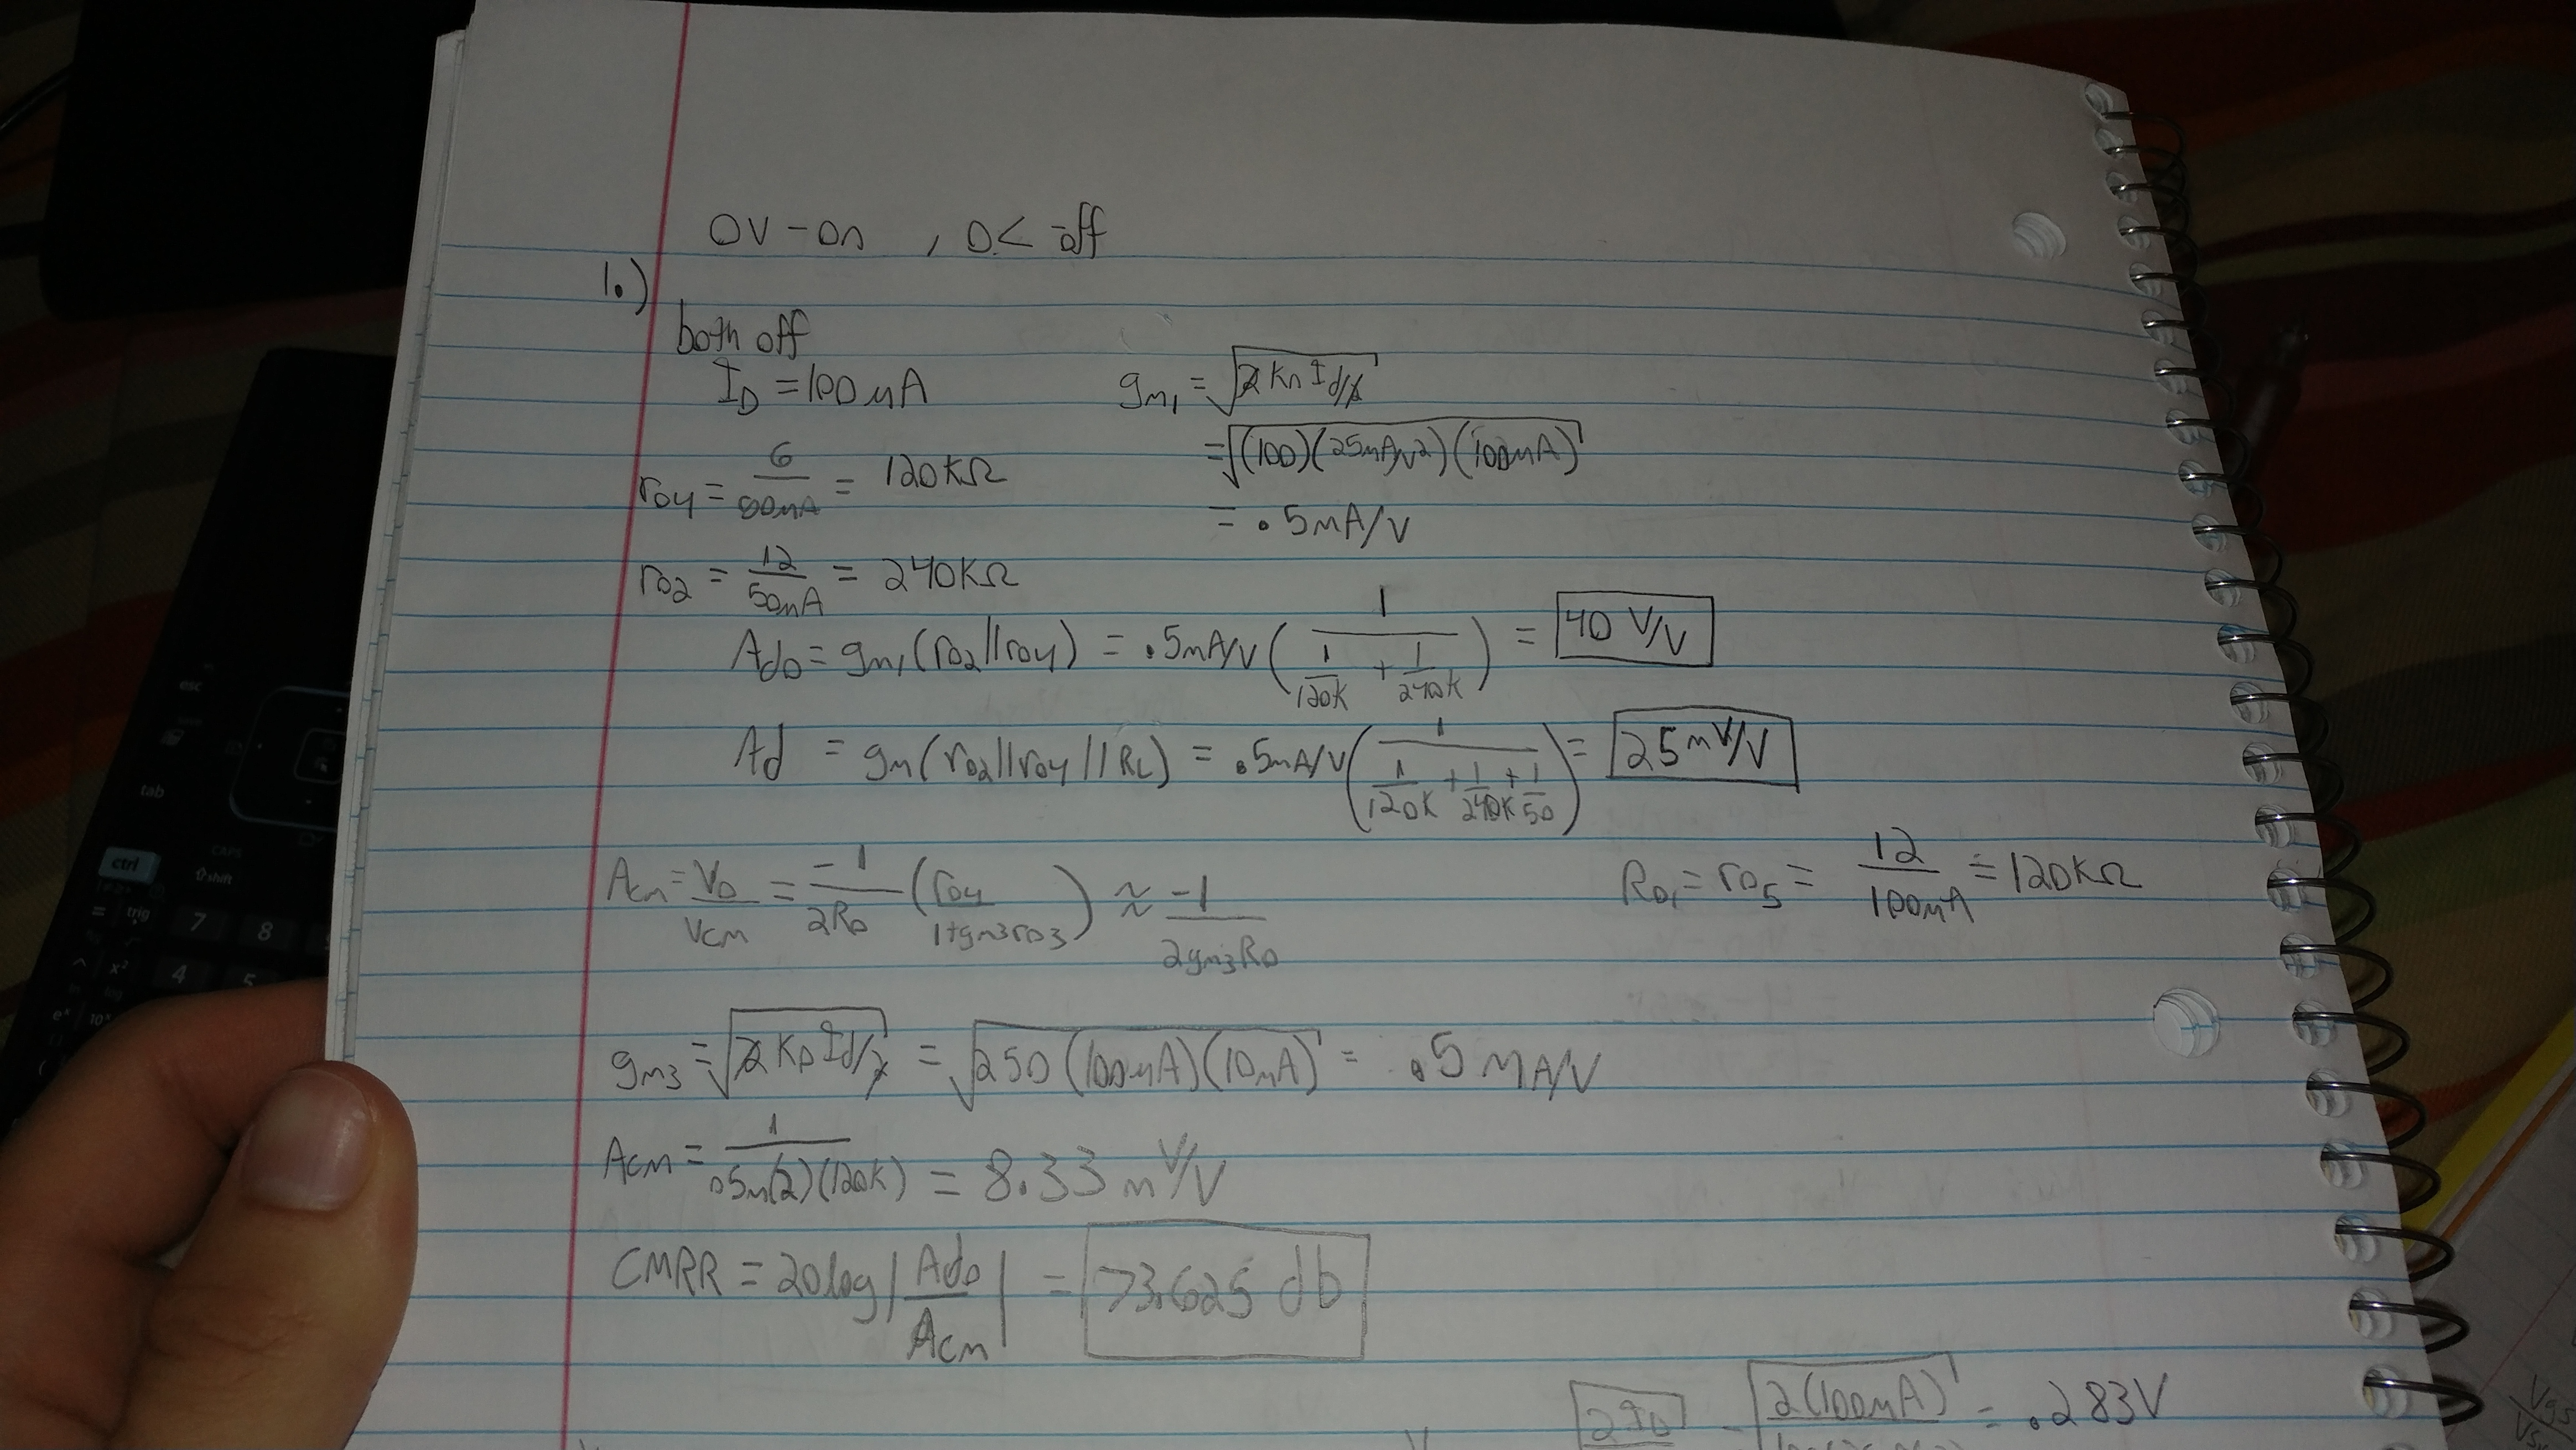 0V - on , 0< off
1.)
both off
I_D = 100 μA
g_m1 = √(2 Kn Id/2)
= √((100)(25μA/V2)(100μA))
r_o4 = 6/50μA = 120KΩ
= .5mA/V
r_o2 = 12/50μA = 240KΩ
Ado = gm1(ro2||ro4) = .5mA/V (1/(1/120K + 1/240K)) = 40 V/V
Ad = gm(ro2||ro4||RL) = .5mA/V (1/(1/120K + 1/240K + 1/50)) = 25mV/V
Acm = Vo/Vcm = -1/2Ro (ro4/1+gm3ro3) ≈ -1/2gm3Ro
Ro1 = ro5 = 12/100μA = 120KΩ
gm3 = √(2 Kp Id/2) = √(250(100μA)(10μA)) = .5 mA/V
Acm = 1/.5m(2)(120K) = 8.33 mV/V
CMRR = 20log|Ado/Acm| = 73.625 db
2(100μA) = .283V
esc
tab
ctrl
CAPS
shift
= trig 7 8
^ x² 4 5
10ˣ